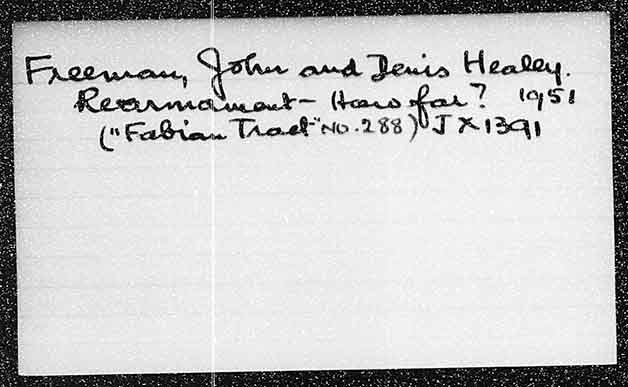 Freeman, John and Denis Healey.
Rearmament - How far? 1951
("Fabian Tract" No. 288) JX1391